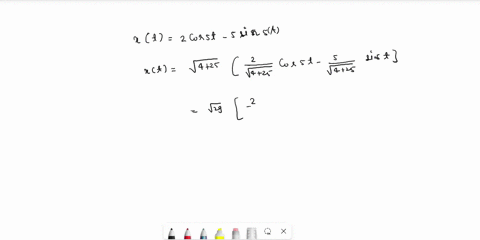 x(t) = 2 cos5t - 5 sin 5(t)
x(t) = √(4+25) [ 2/√(4+25) cos 5t - 5/√(4+25) sin 5t ]
= √29 [ 2